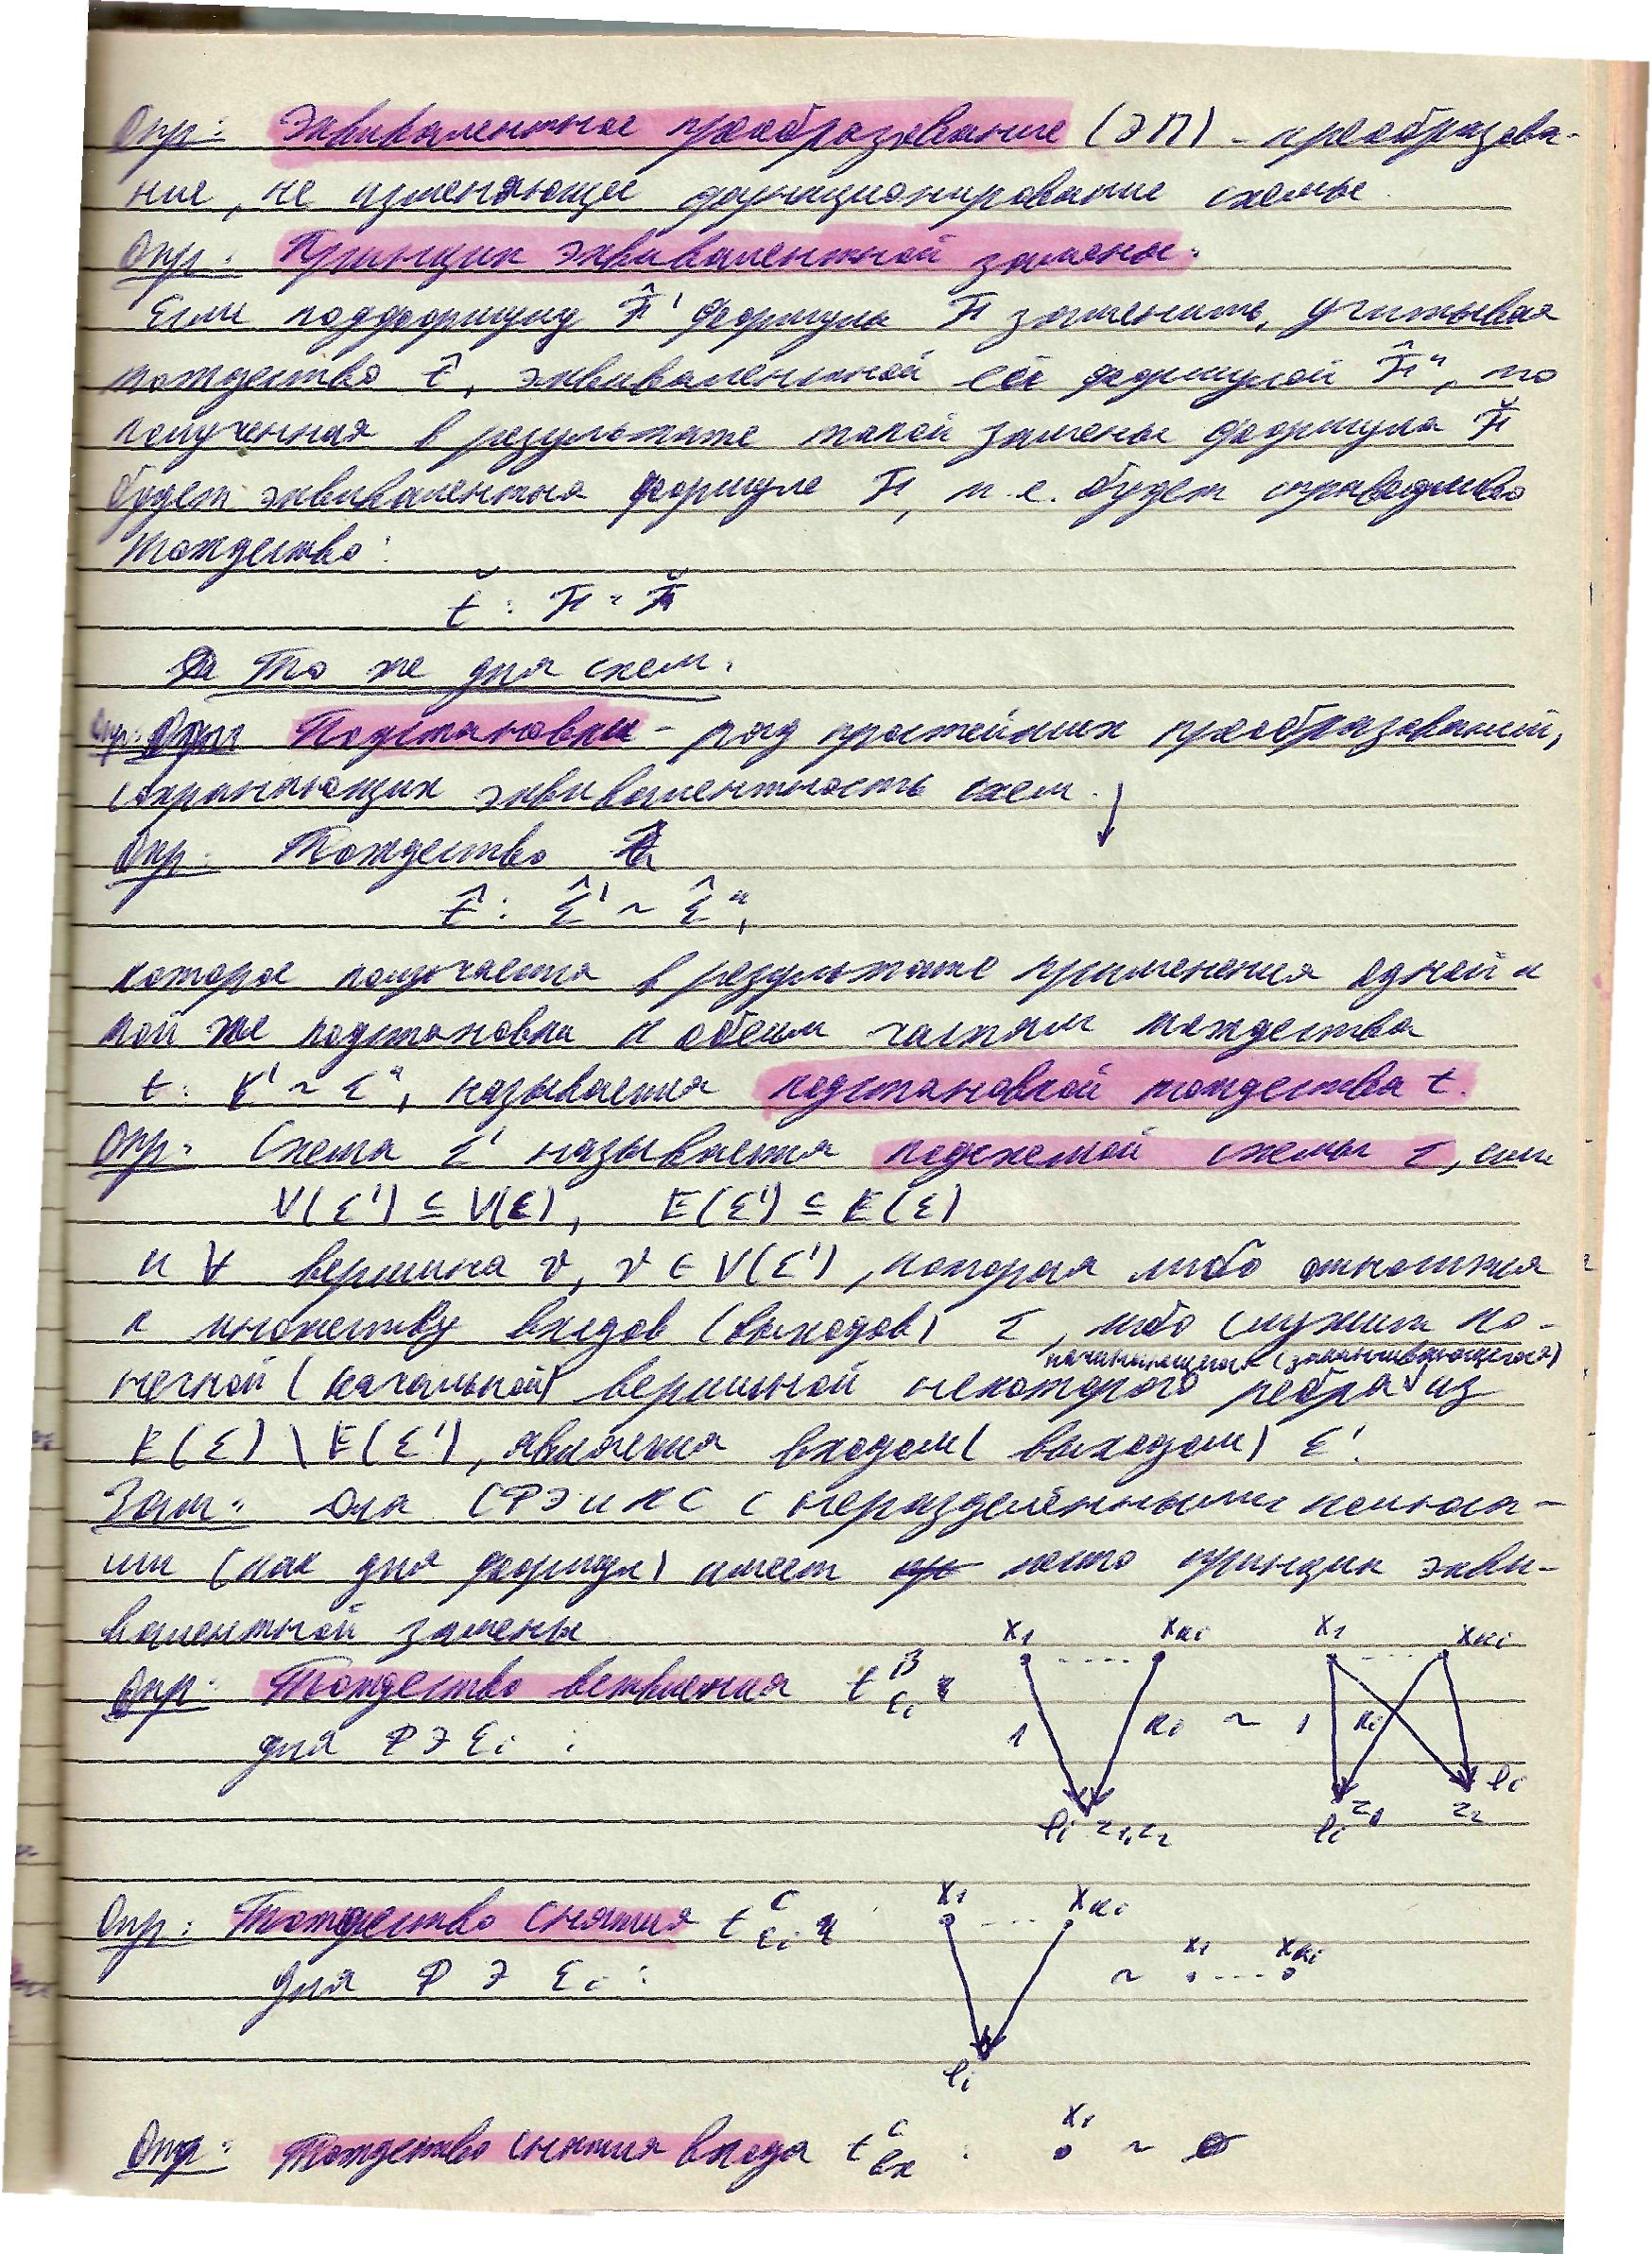 Опр: Эквивалентное преобразование (ЭП) - преобразова-
ние, не изменяющее функционирование схемы.
Опр: Принцип эквивалентной замены.
Если подформулу F̂' формулы F заменить, учитывая
тождество t̂, эквивалентной ей формулой F̂'', то
полученная в результате такой замены формула F̌
будет эквивалентна формуле F, т.е. будет справедливо
тождество:
ť : F = F̌
То же для схем.
Опр: Подстановки - ряд простейших преобразований,
сохраняющих эквивалентность схем.
Опр: Тождество
t̂ : Σ̂' ~ Σ̂'',
которое получается в результате применения одной и
той же подстановки к обеим частям тождества
t : Σ' ~ Σ'', называется подстановкой тождества t.
Опр: Схема Σ' называется подсхемой схемы Σ, если
V(Σ') ⊆ V(Σ), E(Σ') ⊆ E(Σ)
и ∀ вершина v, v ∈ V(Σ'), которая либо относится
к множеству входов (выходов) Σ, либо служит ко-
начинающегося (заканчивающегося)
нечной (начальной) вершиной некоторого ребра из
E(Σ) \ E(Σ'), является входом (выходом) Σ'.
Зам: Для СФЭ и КС с неразделёнными полюса-
ми (как для формул) имеет место принцип экви-
валентной замены
x₁ xₖᵢ x₁ xₖᵢ
Опр: Тождество ветвления t^В_εᵢ
для ФЭ εᵢ :
1 kᵢ ~ 1 kᵢ
ℓᵢ z₁,z₂ ℓᵢ z₁ z₂ ℓᵢ
x₁ xₖᵢ
Опр: Тождество снятия t^С_εᵢ
для ФЭ εᵢ :
~ x₁ xₖᵢ
ℓᵢ
x₁
Опр: Тождество снятия входа t^С_вх : ~ ∅